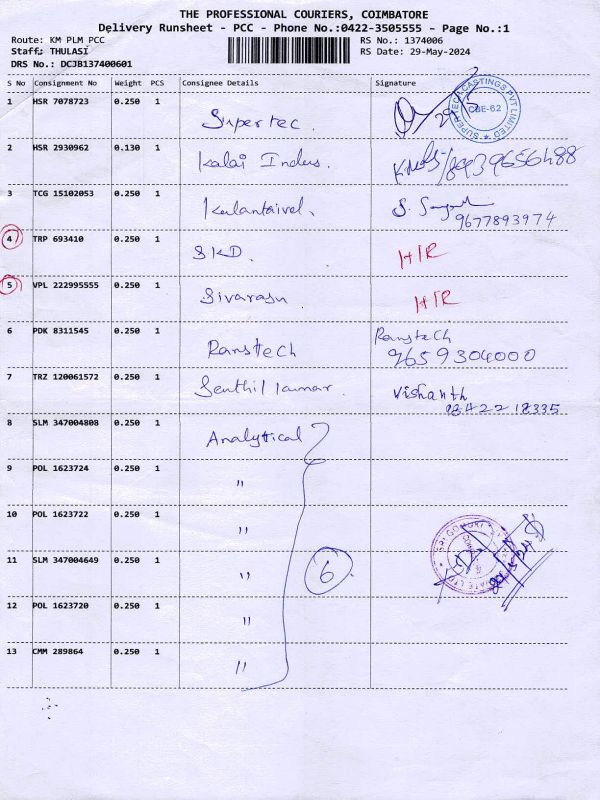 THE PROFESSIONAL COURIERS, COIMBATORE
Delivery Runsheet - PCC - Phone No.:0422-3505555 - Page No.:1
Route: KM PLM PCC
RS No.: 1374006
Staff: THULASI
RS Date: 29-May-2024
DRS No.: DCJB137400601
S No Consignment No Weight PCS Consignee Details Signature
1 HSR 7078723 0.250 1 Supertec. 29/5
SUPERTECH CASTINGS PVT LIMITED CBE-62
2 HSR 2930962 0.130 1 Kalai Indus. 8939656488
3 TCG 15102053 0.250 1 Kalantaivel. S.
9677893974
4 TRP 693410 0.250 1 SKD. HIR
5 VPL 222995555 0.250 1 Sivarasu HIR
6 PDK 8311545 0.250 1 Ranstech Ranstech
9659304000
7 TRZ 120061572 0.250 1 Senthil kumar. Vishanth
98422 18335
8 SLM 347004808 0.250 1 Analytical
9 POL 1623724 0.250 1 "
10 POL 1623722 0.250 1 "
11 SLM 347004649 0.250 1 " 6
12 POL 1623720 0.250 1 "
13 CMM 289864 0.250 1 "